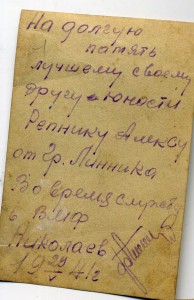 На долгую
память
лучшему своему
другу юности
Репнику Алексу
от Гр. Линника
Во время служб
в ВМФ
Николаев
19 29/V 41 г